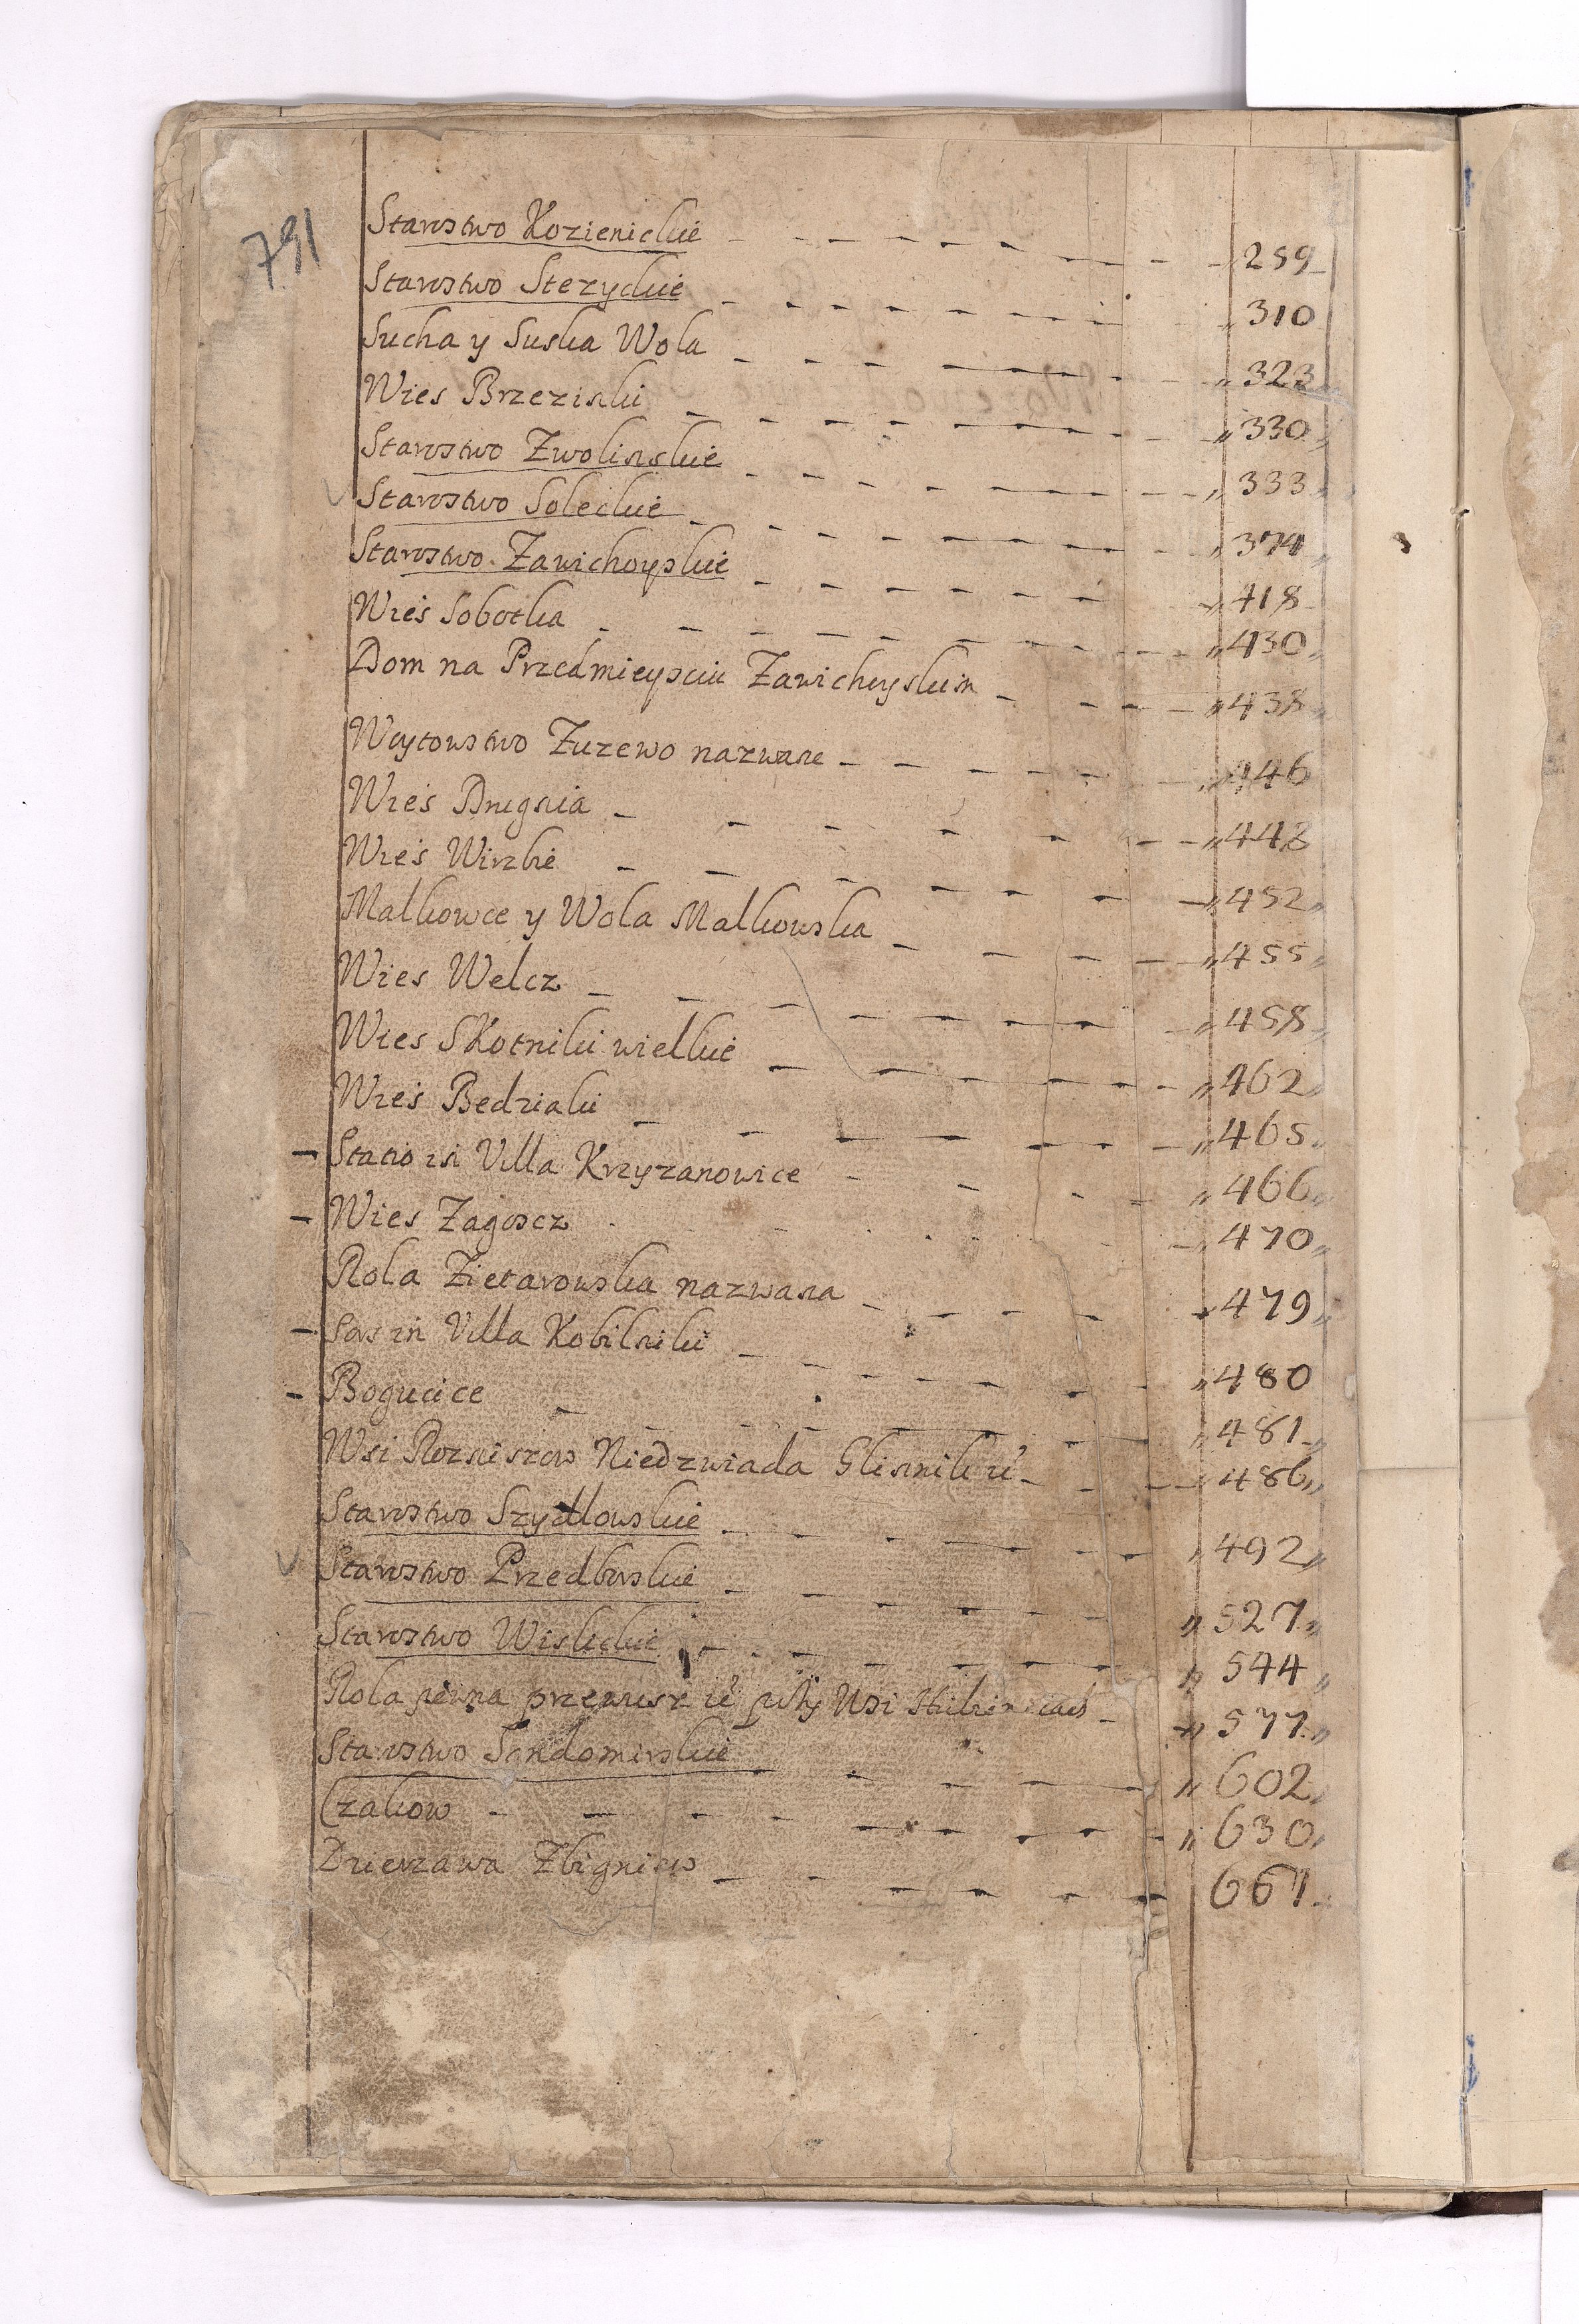 791
Starostwo Kozienickie 259
Starostwo Stezyckie 310
Sucha y Suska Wola 323
Wies Brzezinki 330
Starostwo Zwolinskie 333
Starostwo Soleckie 374
Starostwo Zawichoyskie 418
Wieś Sobotka 430
Dom na Przedmieysciu Zawichoyskim 438
Woytowstwo Zurewo nazwane 446
Wieś Drugnia 448
Wieś Wirzbie 452
Malkowce y Wola Malkowska 455
Wies Welcz 458
Wies Skotniki wielkie 462
Wieś Bedziaki 465
Statio in Villa Krzyzanowice 466
Wies Zagoscz 470
Rola Zietarowska nazwana 479
Sors in Villa Kobilniki 480
Bogucice 481
Wsi Rozniszow Niedzwiada Glinnik 486
Starostwo Szydlowskie 492
Starostwo Przedborskie 527
Starostwo Wislickie 544
Rola pewna przy Wsi 577
Starostwo Sendomirskie 602
Czakow 630
Dzierzawa Zbigniew 661